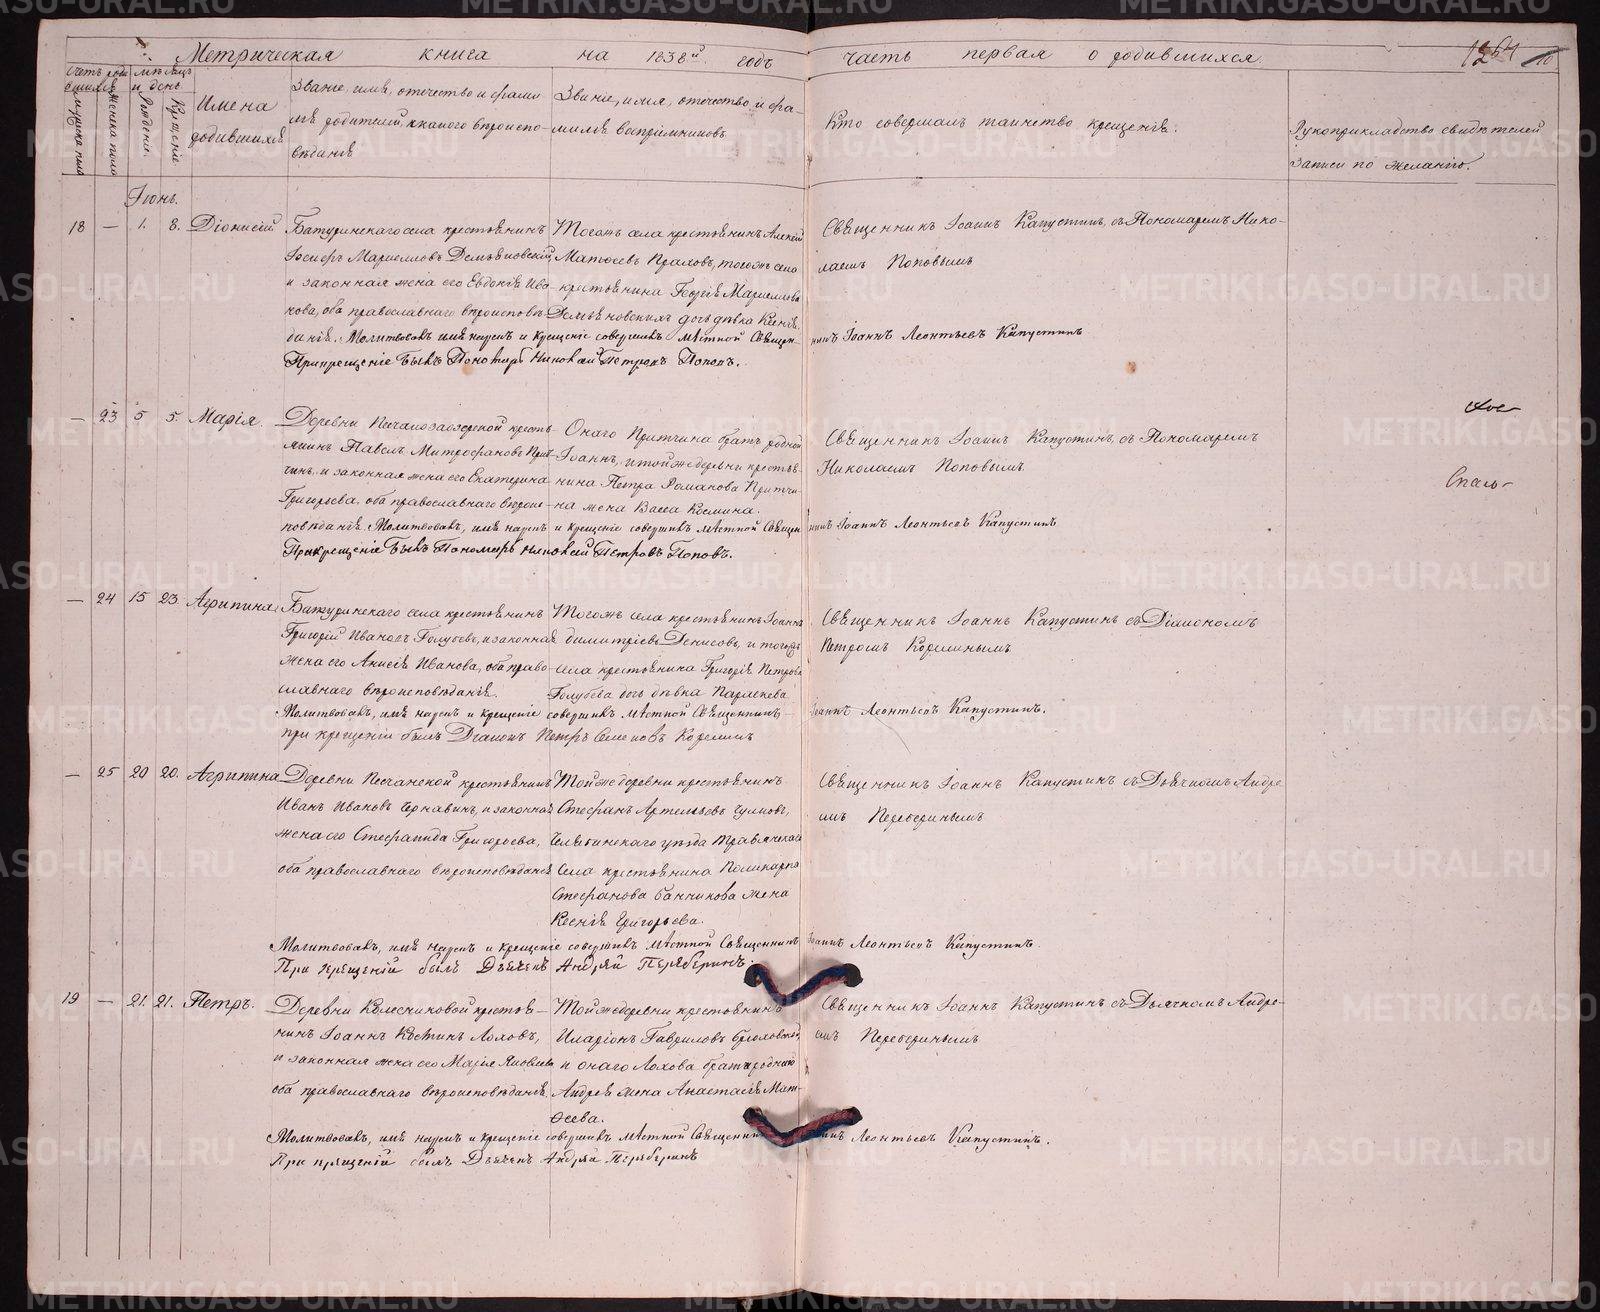 Метрическая книга на 1838й годъ часть первая о родившихся
Счетъ родившихся
мужеска пола
женска пола
мѣсяцъ и день
Рожденіе.
Крещеніе
Имена родившихся
Званіе, имя, отечество и фами-
лія родителей, и какого вѣроиспо-
вѣданія
Званіе, имя, отечество и фа-
милія воспріемниковъ
Кто совершалъ таинство крещенія.
Рукоприкладство свидѣтелей
записи по желанію.
Іюнь.
18 — 1. 8. Діонисій
Батуринскаго села крестьянинъ
Іосифъ Маркелловъ Демьяновскій
и законная жена его Евдокія
оба православнаго вѣроисповѣ-
данія.
Тогожъ села крестьянинъ Алексѣй
Матѳеевъ тогожъ села
крестьянина Георгія Маркеллова
Демьяновскихъ дочь дѣвка Ксенія.
Священникъ Іоаннъ Капустинъ, съ Пономаремъ Нико-
лаемъ Поповымъ
Молитвовалъ имя нарекъ и крещеніе совершилъ мѣстной Священникъ Іоаннъ Леонтьевъ Капустинъ
При крещеніе былъ Пономарь Николай Петровъ Попов.
— 23 5 5. Марія.
Деревни Песчанозаозерской кресть-
янинъ Павелъ Митрофановъ Прит-
чинъ, и законная жена его Екатерина
Григорьева, оба православнаго вѣроис-
повѣданія.
Онаго Притчина братъ родной
Іоаннъ, и тойже деревни крестья-
нина Петра Романова Притчи-
на жена Васса Козмина.
Священникъ Іоаннъ Капустинъ, съ Пономаремъ
Николаемъ Поповымъ
Молитвовалъ, имя нарекъ и крещеніе совершилъ мѣстной Священникъ Іоаннъ Леонтьевъ Капустинъ
При крещеніе былъ Пономарь Николай Петровъ Поповъ.
— 24 15 23. Агрипина
Батуринскаго села крестьянинъ
Григорій Ивановъ Голубевъ, и законная
жена его Анисія Иванова, оба право-
славнаго вѣроисповѣданія.
Тогожъ села крестьянинъ Іоаннъ
Димитріевъ Денисовъ, и тогожъ
села крестьянина Григорія Петрова
Голубева дочь дѣвка Параскева
Священникъ Іоаннъ Капустинъ съ Діакономъ
Петромъ Корелинымъ
Молитвовалъ, имя нарекъ и крещеніе совершилъ мѣстной Священникъ Іоаннъ Леонтьевъ Капустинъ.
при крещеніи былъ Діаконъ Петръ Семеновъ Корелинъ
— 25 20 20. Агрипина
Деревни Песчанской крестьянинъ
Иванъ Ивановъ Чернавинъ, и законная
жена его Стефанида Григорьева,
оба православнаго вѣроисповѣданія
Тойже деревни крестьянинъ
Стефанъ Артемьевъ
Челябинскаго уѣзда Травянскаго
Села крестьянина Поликарпа
Стефанова Банникова жена
Ксенія Григорьева.
Священникъ Іоаннъ Капустинъ съ Дьячкомъ Андре-
емъ Переберинымъ
Молитвовалъ, имя нарекъ и крещеніе совершилъ мѣстной Священникъ Іоаннъ Леонтьевъ Капустинъ.
При крещеніи былъ Дьячекъ Андрей Переберинъ.
19 — 21. 21. Петръ.
Деревни Колесниковой крестья-
нинъ Іоаннъ Лоховъ,
и законная жена его Марія Яковлева
оба православнаго вѣроисповѣданія.
Тойже деревни крестьянинъ
Иларіонъ Гавриловъ
и онаго Лохова брата роднаго
Андрея жена Анастасія Мат-
ѳеева.
Священникъ Іоаннъ Капустинъ съ Дьячкомъ Андре-
емъ Переберинымъ
Молитвовалъ, имя нарекъ и крещеніе совершилъ мѣстной Священникъ Леонтьевъ Капустинъ.
При крещеніи былъ Дьячекъ Андрей Переберинъ
METRIKI.GASO-URAL.RU